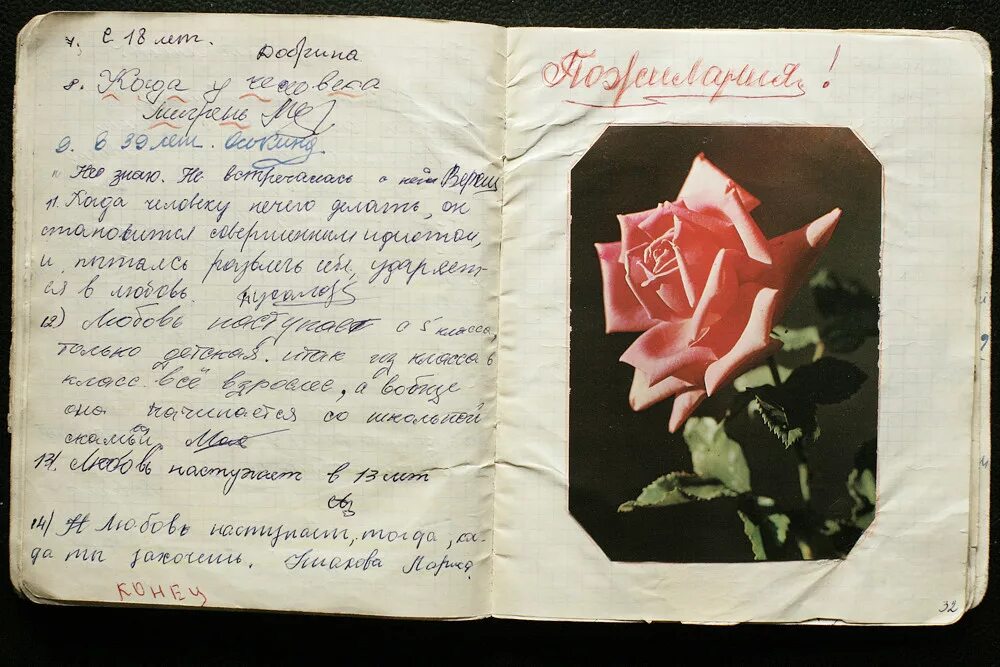 7. С 18 лет.
Добрина
8. Когда у человека
мигрень
9. В 39 лет.
Не знаю. Не встречалась с ней
11. Когда человеку нечего делать, он
становится совершенным идиотом,
и, пытаясь развлечь себя, ударяет-
ся в любовь.
12) Любовь наступает с 5 класса,
только детская. итак из класса в
класс всё взрослее, а вобще
она начинается со школьной
скамьи.
13. Любовь наступает в 13 лет
14) Любовь наступает, тогда, ког-
да ты захочешь. Ушакова Лариса
КОНЕЦ
Пожилания!
32